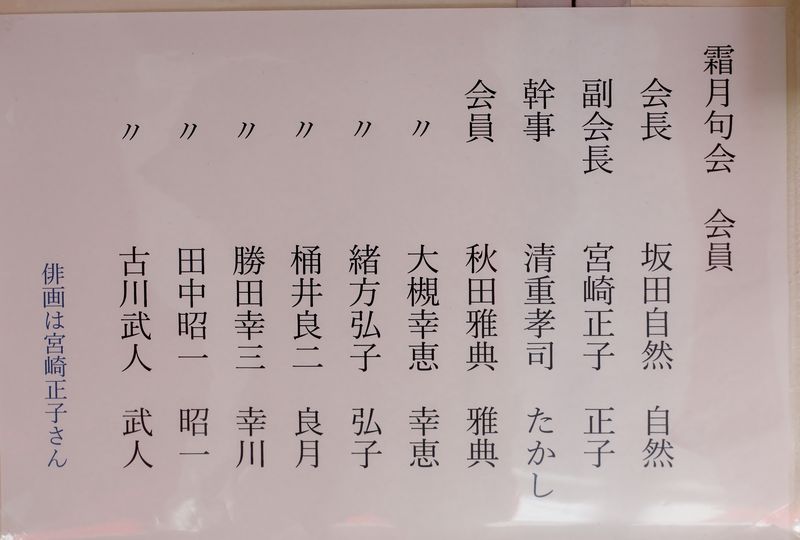 霜月句会　会員
会長　坂田自然　自然
副会長　宮崎正子　正子
幹事　清重孝司　たかし
会員　秋田雅典　雅典
〃　大槻幸恵　幸恵
〃　緒方弘子　弘子
〃　桶井良二　良月
〃　勝田幸三　幸川
〃　田中昭一　昭一
〃　古川武人　武人
俳画は宮崎正子さん